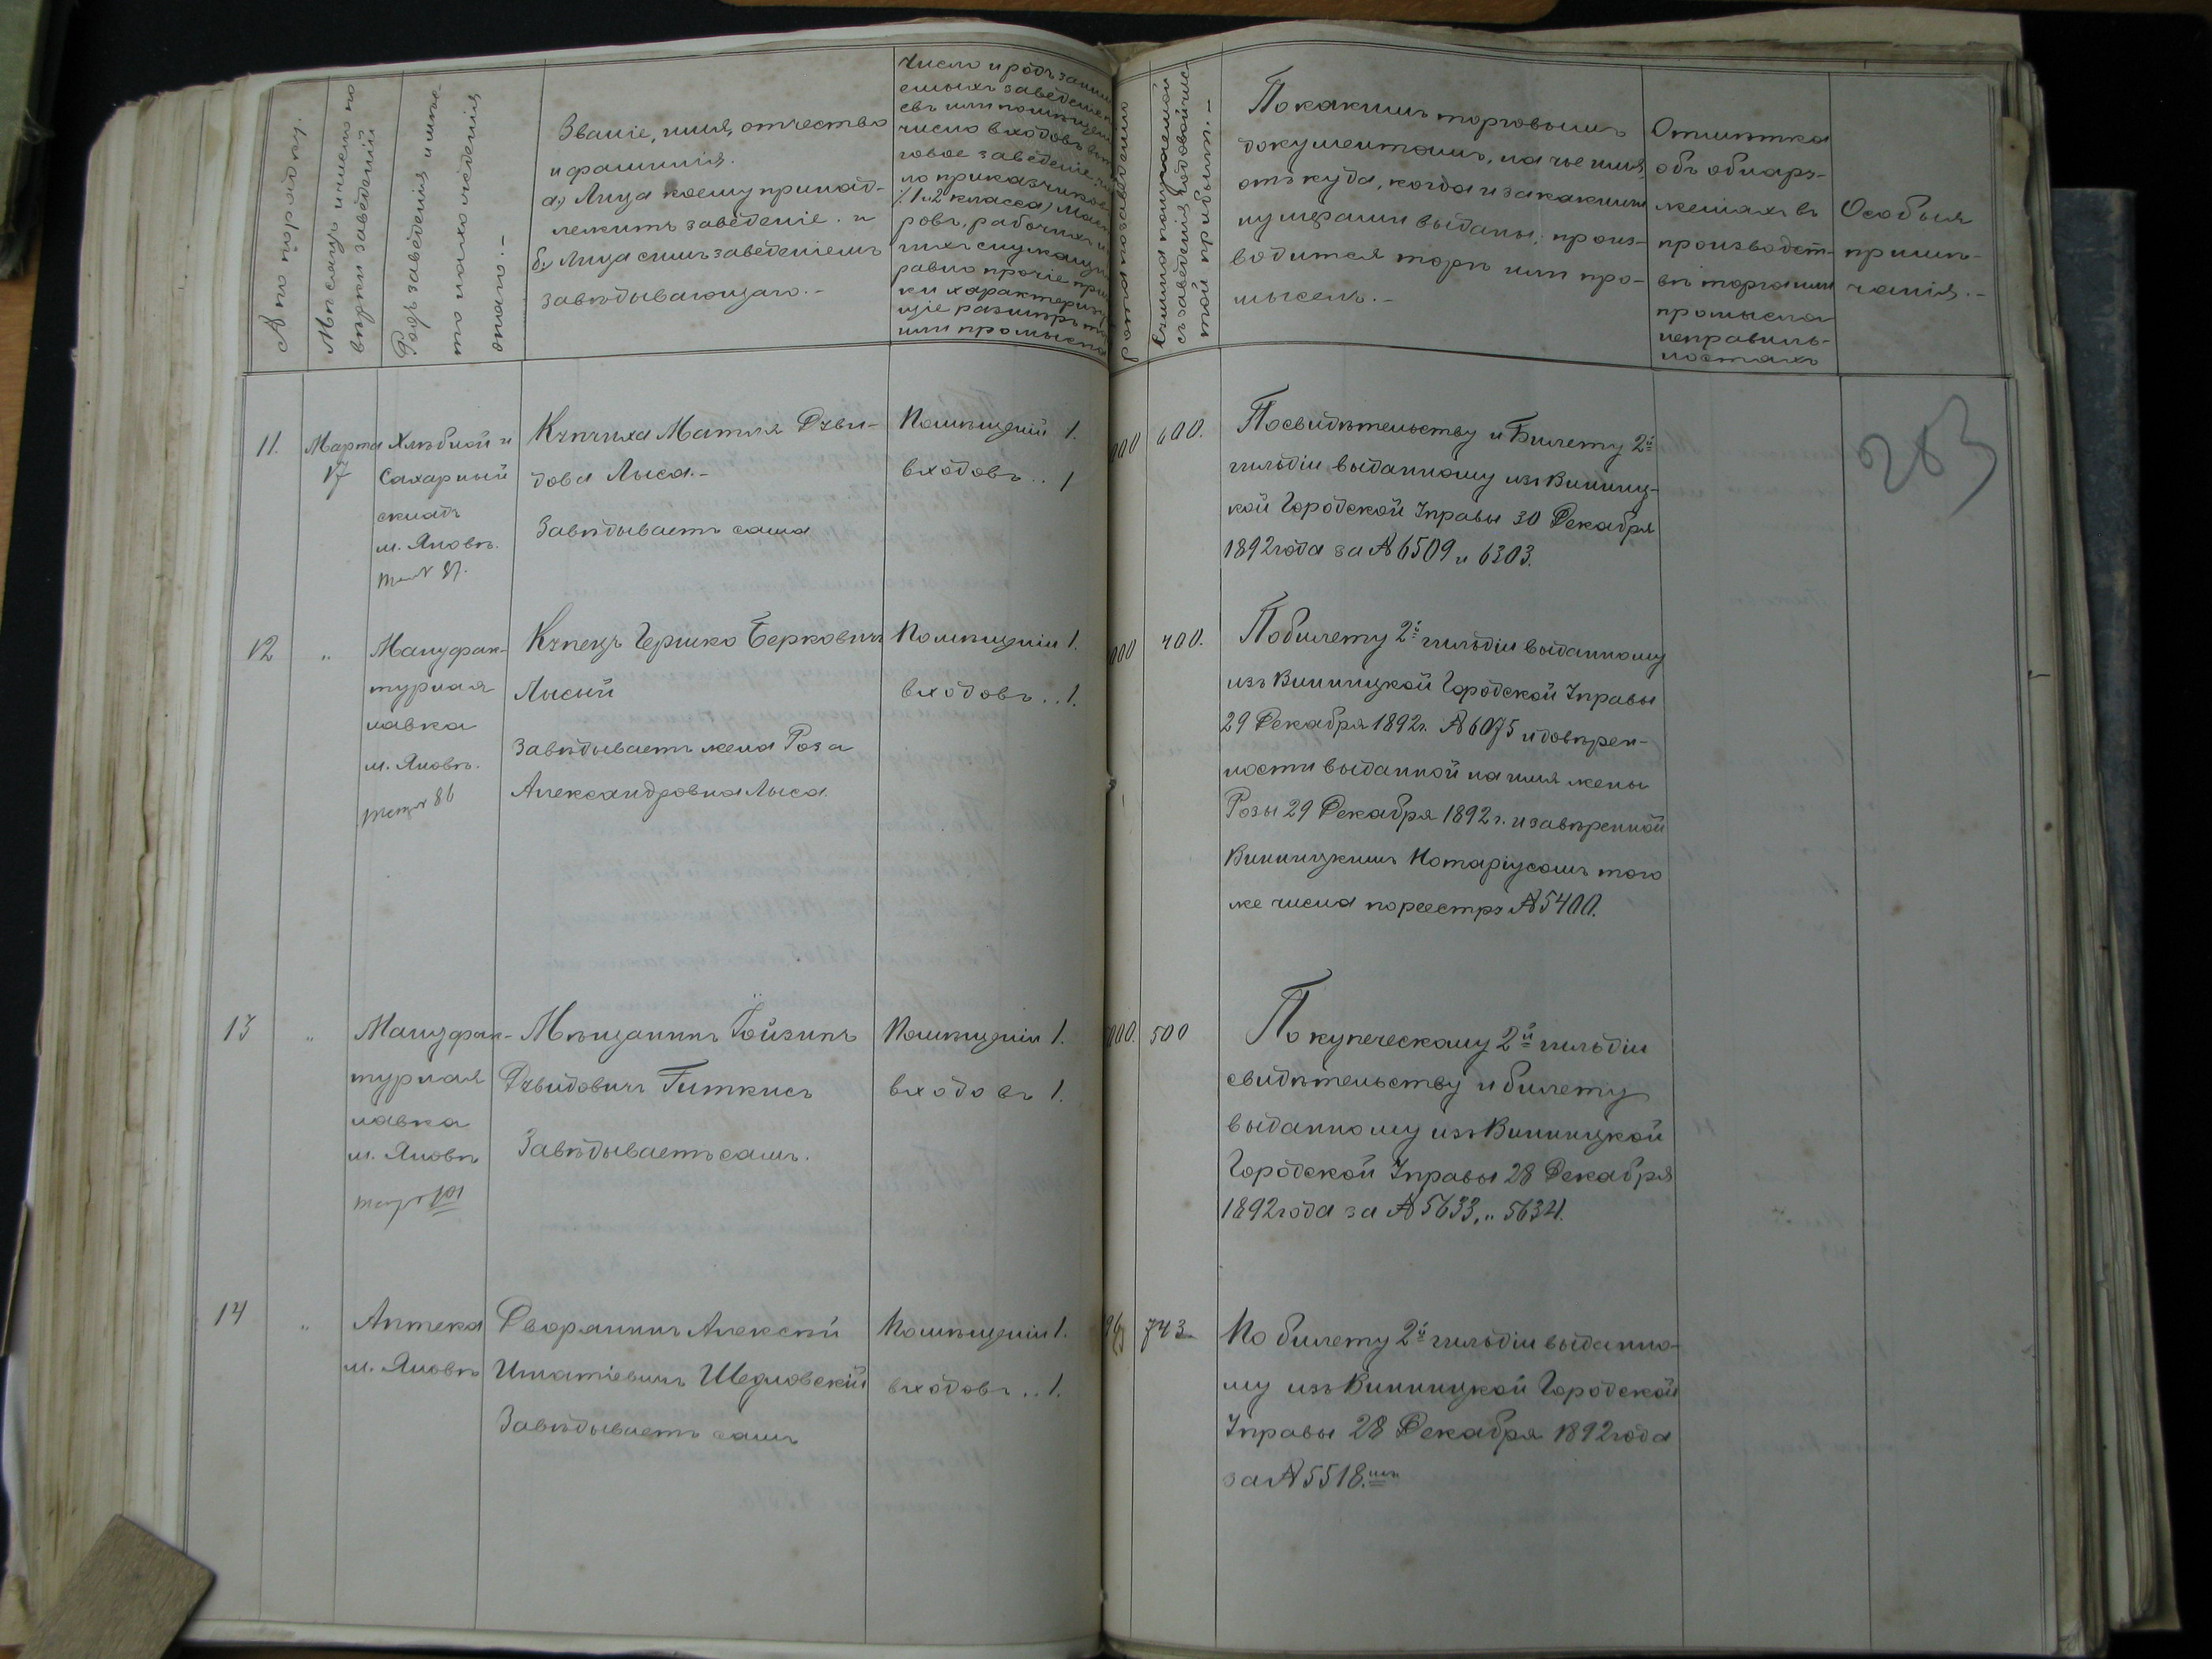 № по порядку.
Мѣсяцъ и число по
вѣрки заведеній
Родъ заведенія и мѣс
то нахожденія
онаго.-
Званіе, имя, отчество
и фамилія.
а) Лица коему принад-
лежитъ заведеніе. и
б) Лица симъ заведеніемъ
завѣдывающаго.-
Число и родъ
заведеніе
число входовъ
говое заведеніе
ло приказчиков
(1 и 2 класса)
ровъ, рабочихъ и
равно прочіе
ки характеризу
щіе размѣръ
или промысла
съ заведенія годовой чис
той прибыли.-
По какимъ торговымъ
документамъ, на чье имя,
откуда, когда и за какими
нумерами выданы, произ-
водится торгъ или про-
мыселъ.-
Отмѣтка
объ обнару-
женіяхъ въ
производст-
вѣ торга или
промысла
неправиль-
ностяхъ
Особыя
примѣ-
чанія.-
11.
Марта
17
Хлѣбной и
Сахарный
складъ
м. Яновъ.
87.
Купчиха Матля Дуви-
дова Лыса.-
Завѣдываетъ сама
Помѣщеній 1.
входовъ.. 1
000
600.
По свидѣтельству и Билету 2й
гильдіи выданному изъ Винниц-
кой Городской Управы 30 Декабря
1892 года за № 6509 и 6303.
283
12
"
Мануфак-
турная
лавка
м. Яновъ.
86
Купецъ Гершко Берковичъ
Лысый
Завѣдываетъ жена Роза
Александровна Лыса
Помѣщеніи 1.
входовъ.. 1.
000
400.
По билету 2й гильдіи выданному
изъ Винницкой Городской Управы
29 Декабря 1892 г. № 6075 и довѣрен-
ности выданной на имя жены
Розы 29 Декабря 1892 г. и завѣренной
Винницкимъ Нотаріусомъ того
же числа по реестру № 5400.
13
"
Мануфак-
турная
лавка
м. Яновъ
101
Мѣщанинъ Гойзикъ
Дувидовичъ Гиткисъ
Завѣдываетъ самъ.
Помѣщеніи 1.
входовъ 1.
000.
500
По купеческому 2й гильдіи
свидѣтельству и билету
выданному изъ Винницкой
Городской Управы 28 Декабря
1892 года за № 5633, " 5634.
14
"
Аптека
м. Яновъ
Дворянинъ Алексѣй
Игнатіевичъ Шедловскій
Завѣдываетъ самъ
Помѣщеніи 1.
входовъ.. 1.
743
По билету 2й гильдіи выданно-
му изъ Винницкой Городской
Управы 28 Декабря 1892 года
за № 5518.